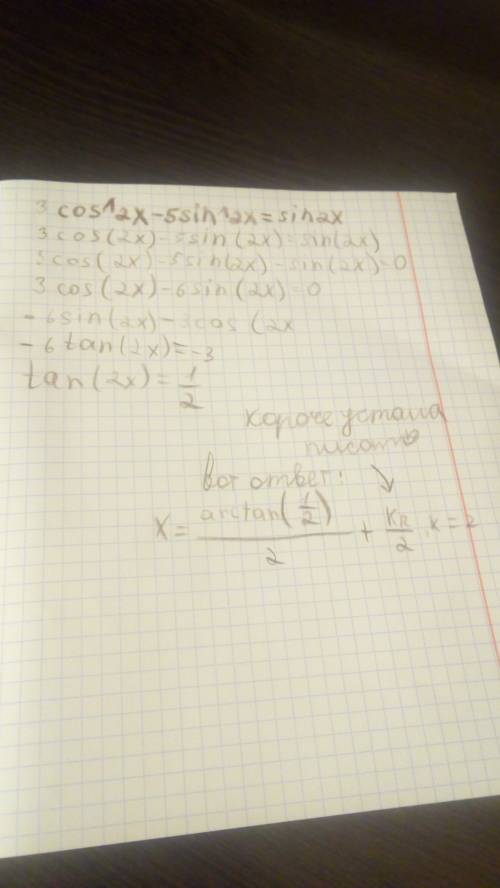 3 cos^2x-5sin^2x=sin2x
3cos(2x)-5sin(2x)=sin(2x)
3cos(2x)-5sin(2x)-sin(2x)=0
3cos(2x)-6sin(2x)=0
-6sin(2x)-3cos(2x
-6tan(2x)=-3
tan(2x)=1/2
короче устала
писать
вот ответ:
x=arctan(1/2)/2+kπ/2, k=z